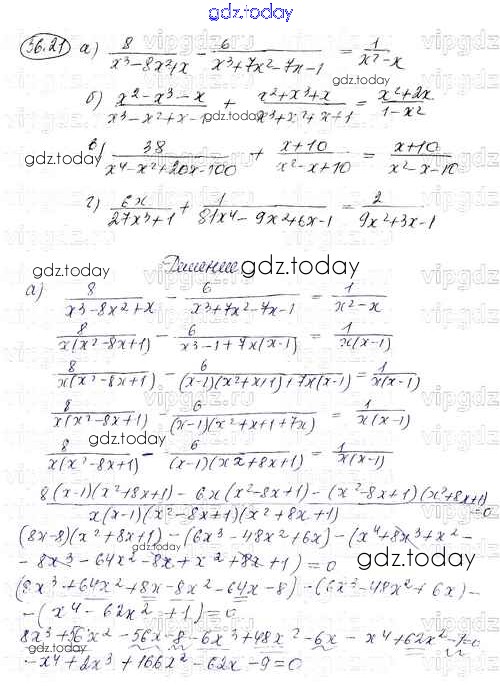 gdz.today
36.21 а) 8/(x³-8x²+x) - 6/(x³+7x²-7x-1) = 1/(x²-x)
gdz.today
б) (x²-x³-x)/(x³-x²+x-1) + (x²+x³+x)/(x³+x²+x+1) = (x²+2x)/(1-x²)
gdz.today
в) 38/(x⁴-x²+20x-100) + (x+10)/(x²-x+10) = (x+10)/(x²-x-10)
gdz.today
г) 6x/(27x³+1) + 1/(81x⁴-9x²+6x-1) = 2/(9x²+3x-1)
Решение
gdz.today
gdz.today
а) 8/(x³-8x²+x) - 6/(x³+7x²-7x-1) = 1/(x²-x)
8/(x(x²-8x+1)) - 6/(x³-1+7x(x-1)) = 1/(x(x-1))
gdz.today
8/(x(x²-8x+1)) - 6/((x-1)(x²+x+1)+7x(x-1)) = 1/(x(x-1))
8/(x(x²-8x+1)) - 6/((x-1)(x²+x+1+7x)) = 1/(x(x-1))
gdz.today
8/(x(x²-8x+1)) - 6/((x-1)(x²+8x+1)) = 1/(x(x-1))
gdz.today
(8(x-1)(x²+8x+1) - 6x(x²-8x+1) - (x²-8x+1)(x²+8x+1))/(x(x-1)(x²-8x+1)(x²+8x+1)) = 0
(8x-8)(x²+8x+1) - (6x³-48x²+6x) - (x⁴+8x³+x²-
gdz.today
-8x³-64x²-8x+x²+8x+1) = 0
(8x³+64x²+8x-8x²-64x-8) - (6x³-48x²+6x)-
gdz.today
-(x⁴-62x²+1)=0
8x³+56x²-56x-8-6x³+48x²-6x-x⁴+62x²-1=0
-x⁴+2x³+166x²-62x-9=0